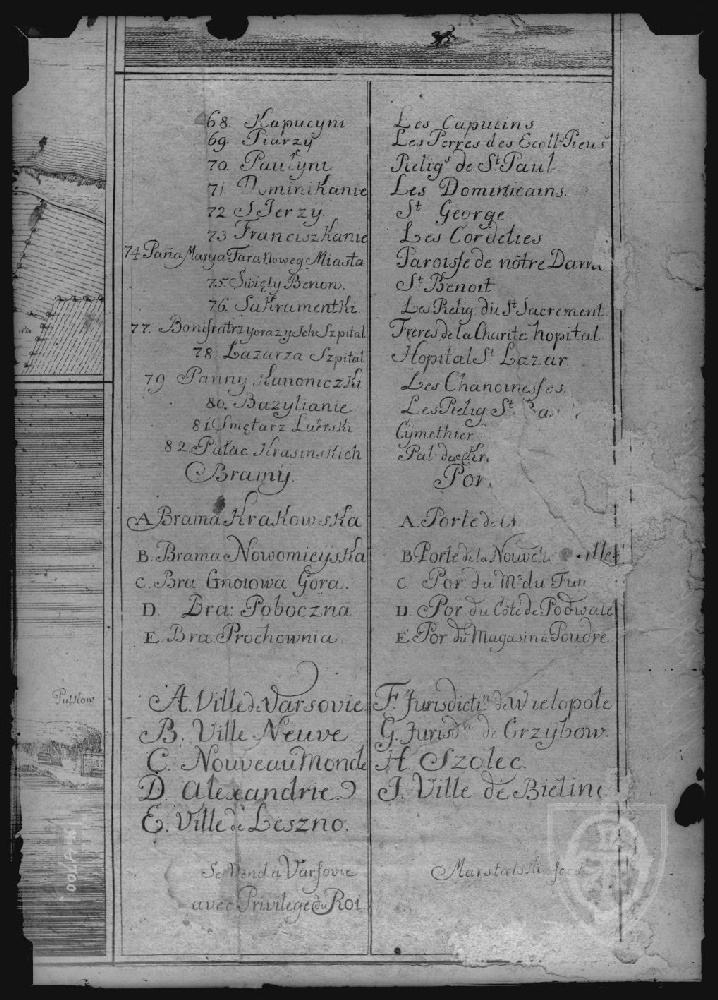 68. Kapucyni
69. Piarzy
70. Paulyni
71 Dominikanie
72 S Jerzy
73 Franciszkanie
74 Paña Marya Tara Noweg Miasta
75. Swięty Benon.
76. Sakramentki
77. Bonifratrzy oraz ych Szpital
78. Lazarza Szpital
79 Panny Kanoniczki
80. Bazylianie
81. Smętarz Luterski
82. Pałac Krasinskich
Bramy.
A. Brama Krakowska
B. Brama Nowomieyska
C. Bra Gnoiowa Gora.
D. Bra: Poboczna
E. Bra Prochownia.
Les Capucins
Les Perres des Ecoll: Pieus
Relig.s de St Paul
Les Dominicains.
St George
Les Cordelies
Paroisse de nôtre Dam
St Benoit
Les Relig. du St Sacrement
Freres de la Charite hopital
Hopital St Lazar
Les Chanoinesses
Les Relig St Ba
Cymethier
Pal de
Por.
A. Porte de
B Porte de la Nouvel ille
C Por du M. du Fum
D. Por du Côte de Podwale
E. Por du Magasin a Poudre
A. Ville de Varsovie
B. Ville Neuve
C. Nouveau Monde
D. Alexandrie
E. Ville de Leszno.
F. Jurisdictn de Wielopole
G. Jurisdn de Grzybow
H. Szolec
J. Ville de Bielinc
Se Vend a Varsovie
avec Privilege du Roi
Pulkow